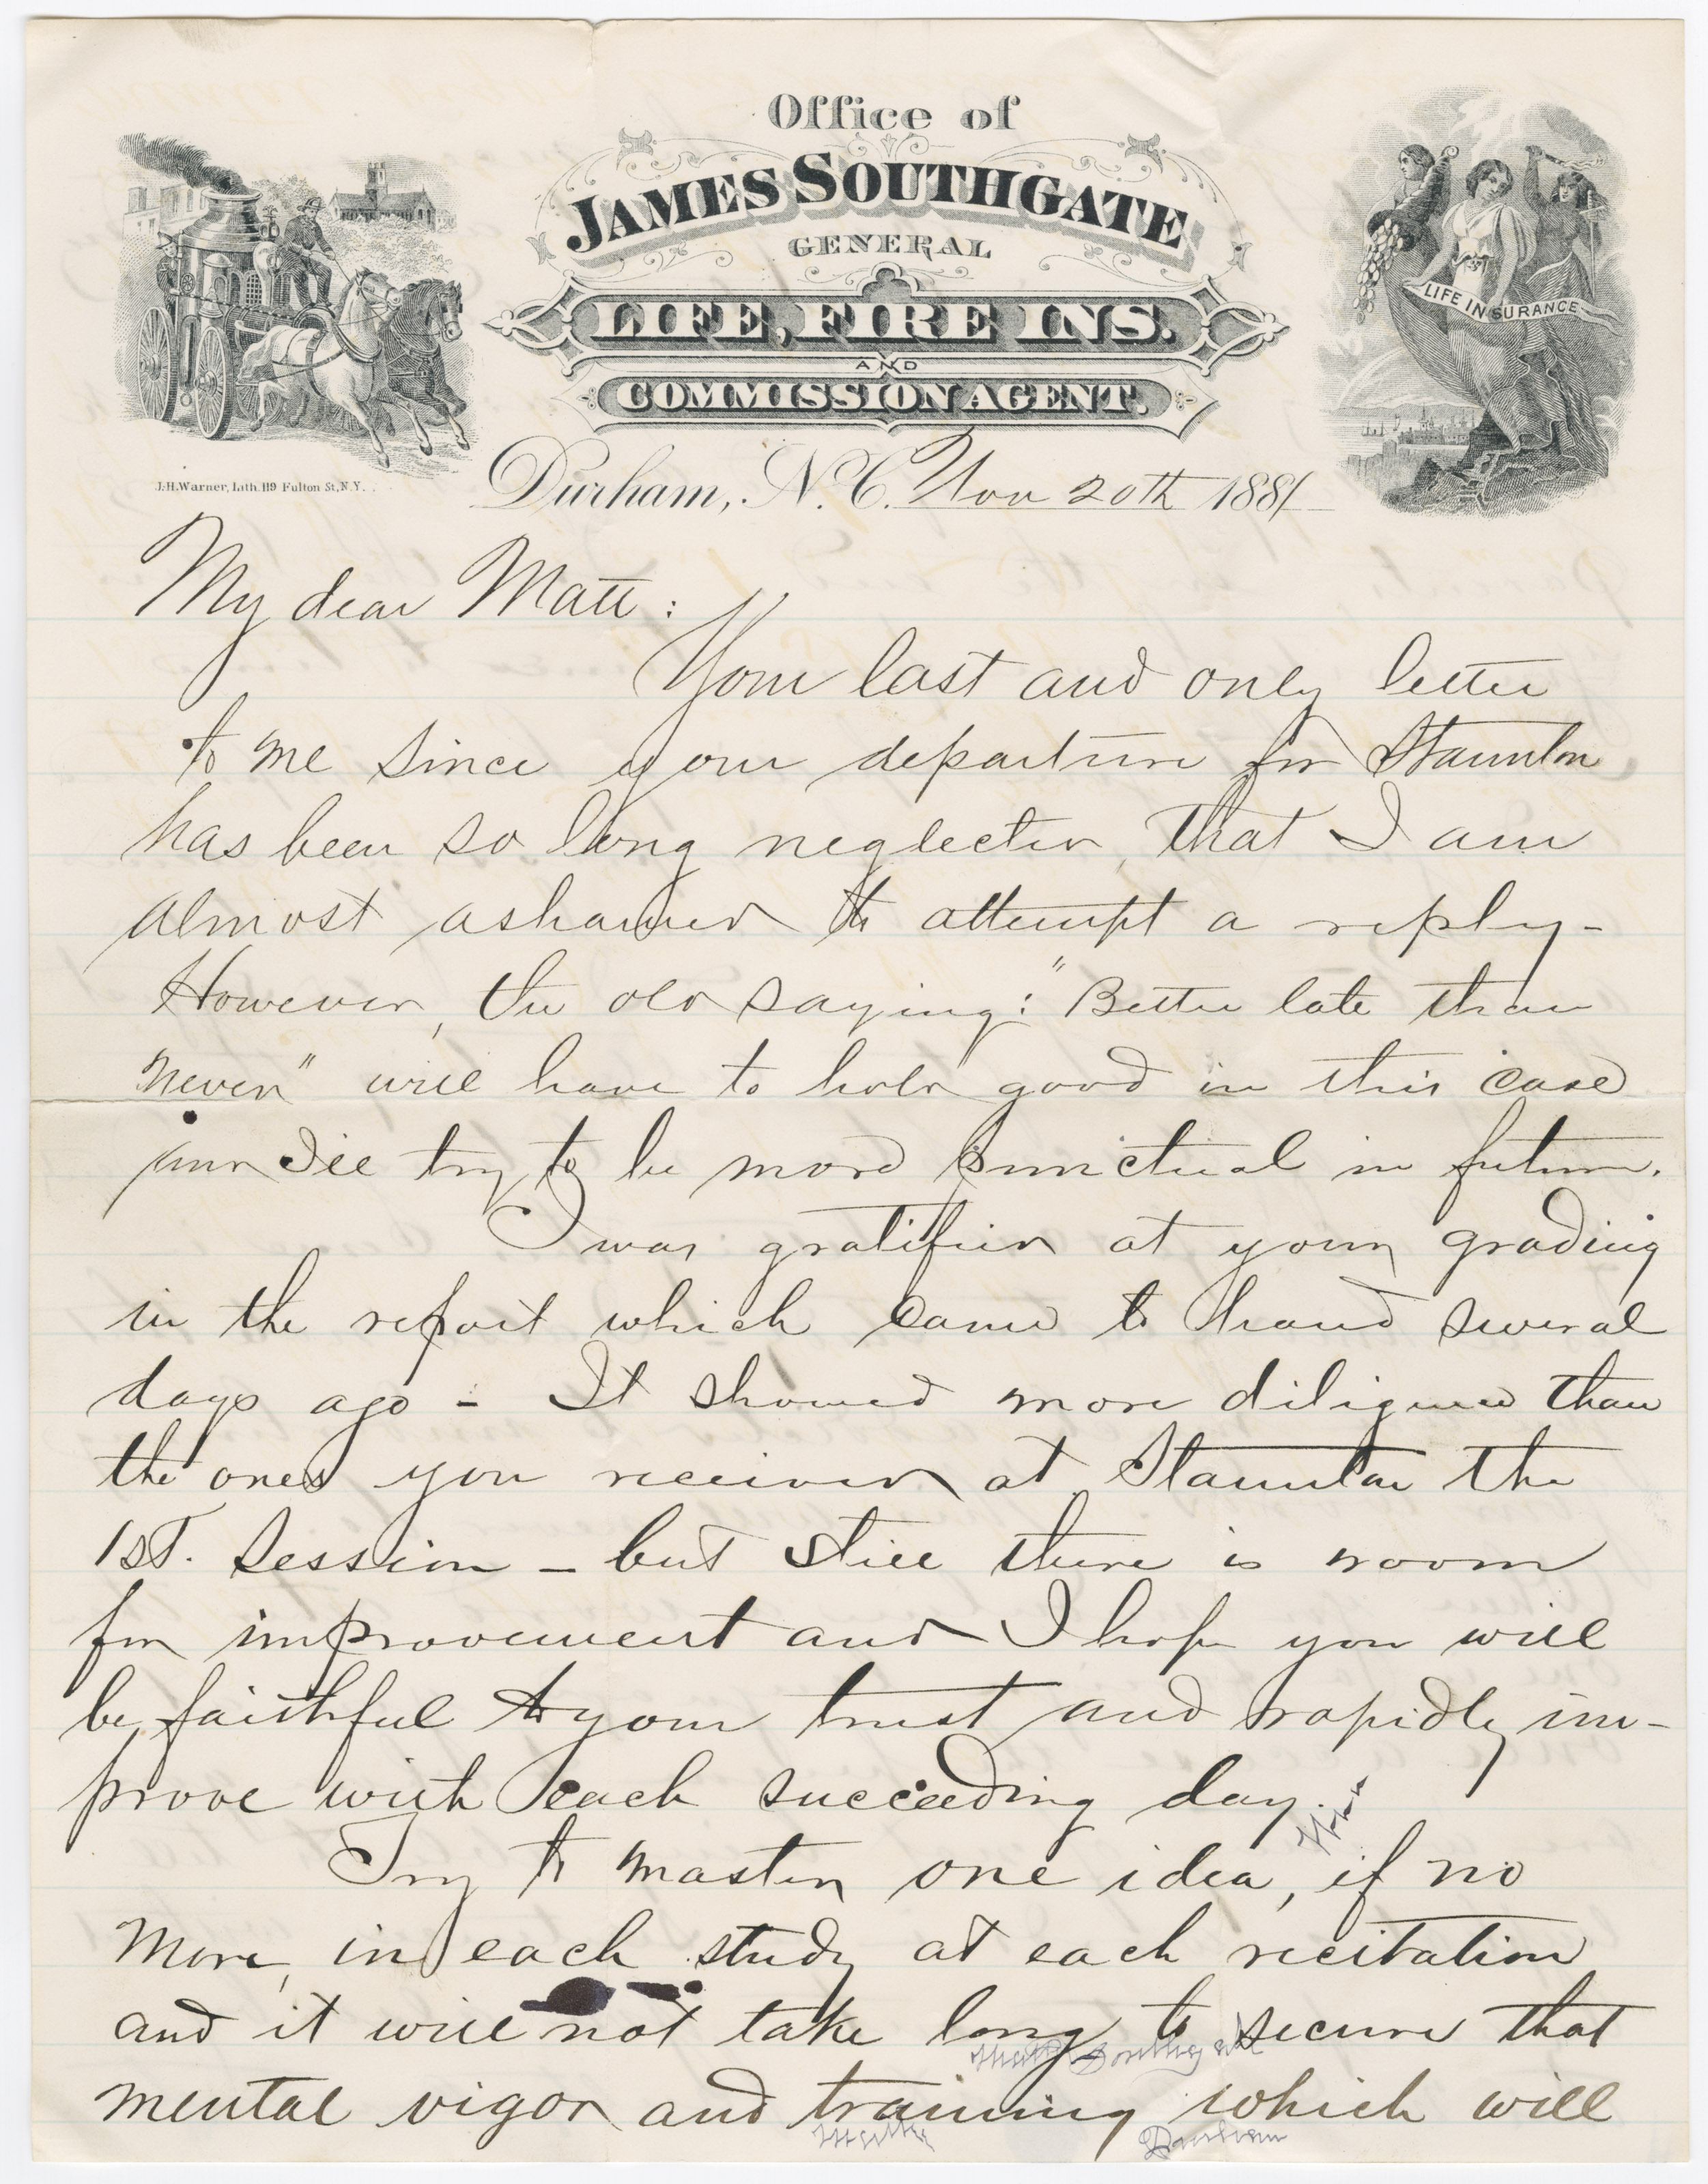 Office of
JAMES SOUTHGATE
GENERAL
LIFE, FIRE INS.
AND
COMMISSION AGENT.
LIFE INSURANCE
J.H. Warner, Lith. 119 Fulton St, N.Y.
Durham, N.C. Nov 20th 1881
My dear Matt:
Your last and only letter
to me since your departure for Staunton
has been so long neglected, that I am
almost ashamed to attempt a reply-
However, the old saying: "Better late than
never" will have to hold good in this case
and I'll try to be more punctual in future.
I was gratified at your grading
in the report which came to hand several
days ago - It showed more diligence than
the ones you received at Staunton the
1st. Session - but still there is room
for improvement and I hope you will
be faithful to your trust and rapidly im-
prove with each succeeding day.
Try to master one idea, if no
more, in each study at each recitation
and it will not take long to secure that
Matt Southgate
mental vigor and training which will
Durham